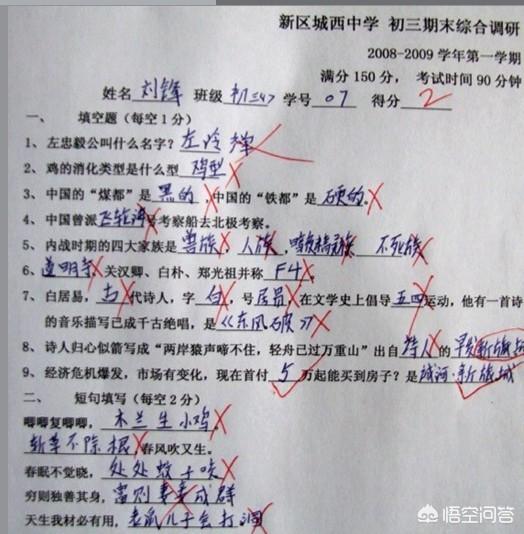 新区城西中学 初三期末综合调研
2008-2009学年第一学期
满分150分，考试时间90分钟
姓名 刘锋 班级 初三47 学号 07 得分 2
一、 填空题（每空1分）
1、左忠毅公叫什么名字？左冷禅
2、鸡的消化类型是什么型 鸡型
3、中国的“煤都”是 黑的 ，中国的“铁都”是 硬的。
4、中国曾派飞轮海号考察船去北极考察。
5、内战时期的四大家族是 兽族、人族、暗夜精灵族 不死族
6、道明寺、关汉卿、白朴、郑光祖并称 F4
7、白居易，古代诗人，字 白，号居易，在文学史上倡导五四运动，他有一首诗
的音乐描写已成千古绝唱，是《东风破》
8、诗人归心似箭写成“两岸猿声啼不住，轻舟已过万重山”出自 诗人 的 早发新旅城
9、经济危机爆发，市场有变化，现在首付 5 万起能买到房子？是 城河·新旅城
二、 短句填写（每空2分）
唧唧复唧唧，木兰生小鸡。
斩草不除根，春风吹又生。
春眠不觉晓，处处蚊子咬
穷则独善其身，富则妻妾成群
天生我材必有用，老鼠儿子会打洞
悟空问答